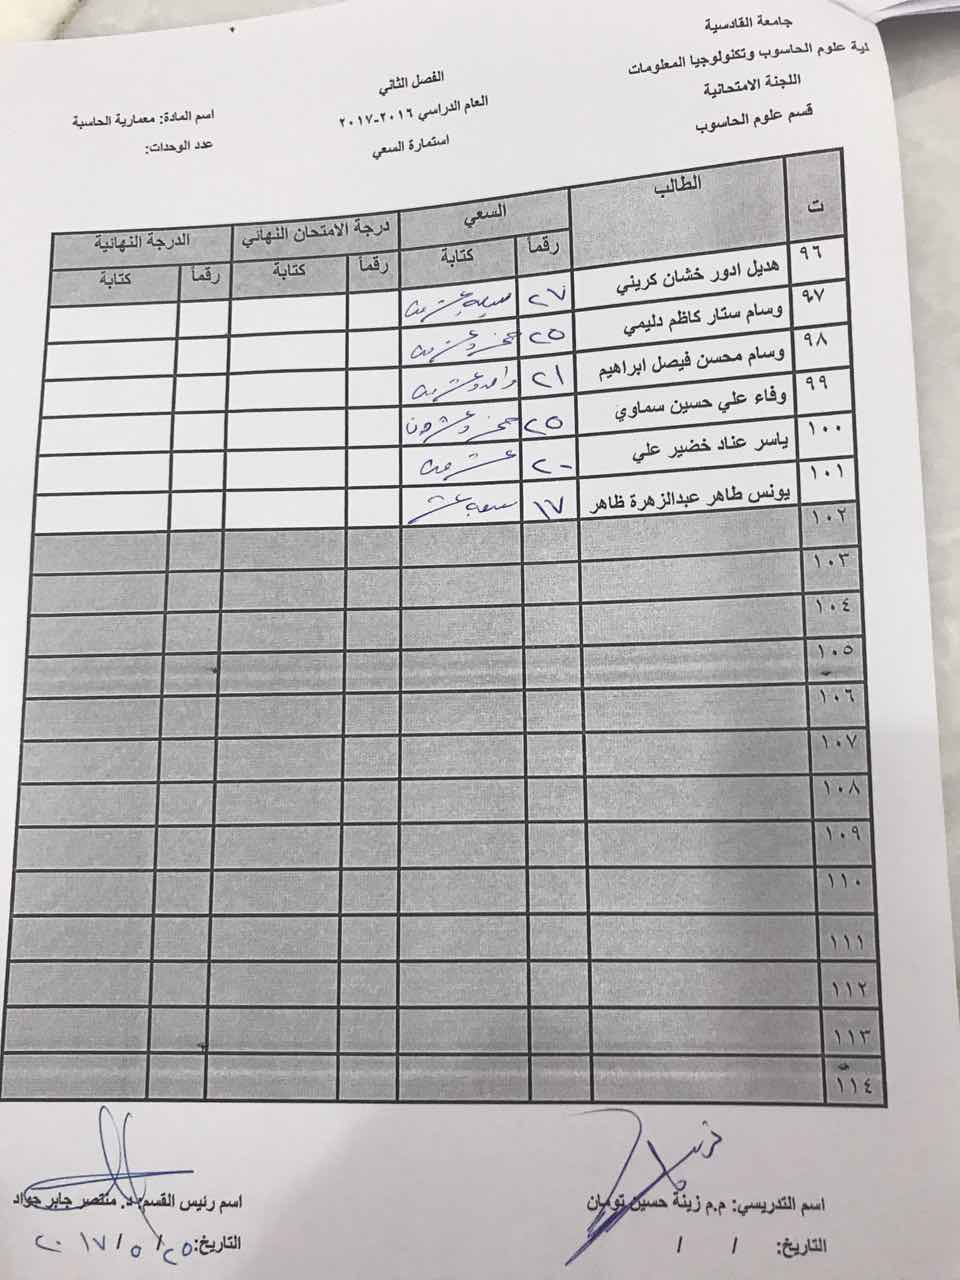 جامعة القادسية
لية علوم الحاسوب وتكنولوجيا المعلومات
اللجنة الامتحانية
قسم علوم الحاسوب
الفصل الثاني
العام الدراسي ٢٠١٦-٢٠١٧
استمارة السعي
اسم المادة: معمارية الحاسبة
عدد الوحدات:
ت الطالب السعي درجة الامتحان النهائي الدرجة النهائية
رقماً كتابة رقماً كتابة رقماً كتابة
٩٦ هديل ادور خشان كريني ٢٧ سبعة وعشرون
٩٧ وسام ستار كاظم دليمي ٢٥ خمس وعشرون
٩٨ وسام محسن فيصل ابراهيم ٢١ واحد وعشرون
٩٩ وفاء علي حسين سماوي ٢٥ خمس وعشرون
١٠٠ ياسر عناد خضير علي ٢٠ عشرون
١٠١ يونس طاهر عبدالزهرة ظاهر ١٧ سبعة عشر
١٠٢
١٠٣
١٠٤
١٠٥
١٠٦
١٠٧
١٠٨
١٠٩
١١٠
١١١
١١٢
١١٣
١١٤
اسم التدريسي: م.م زينة حسين تومان
التاريخ: / /
اسم رئيس القسم: د. منتصر جابر جواد
التاريخ: ٢٥/ ٥ /٢٠١٧